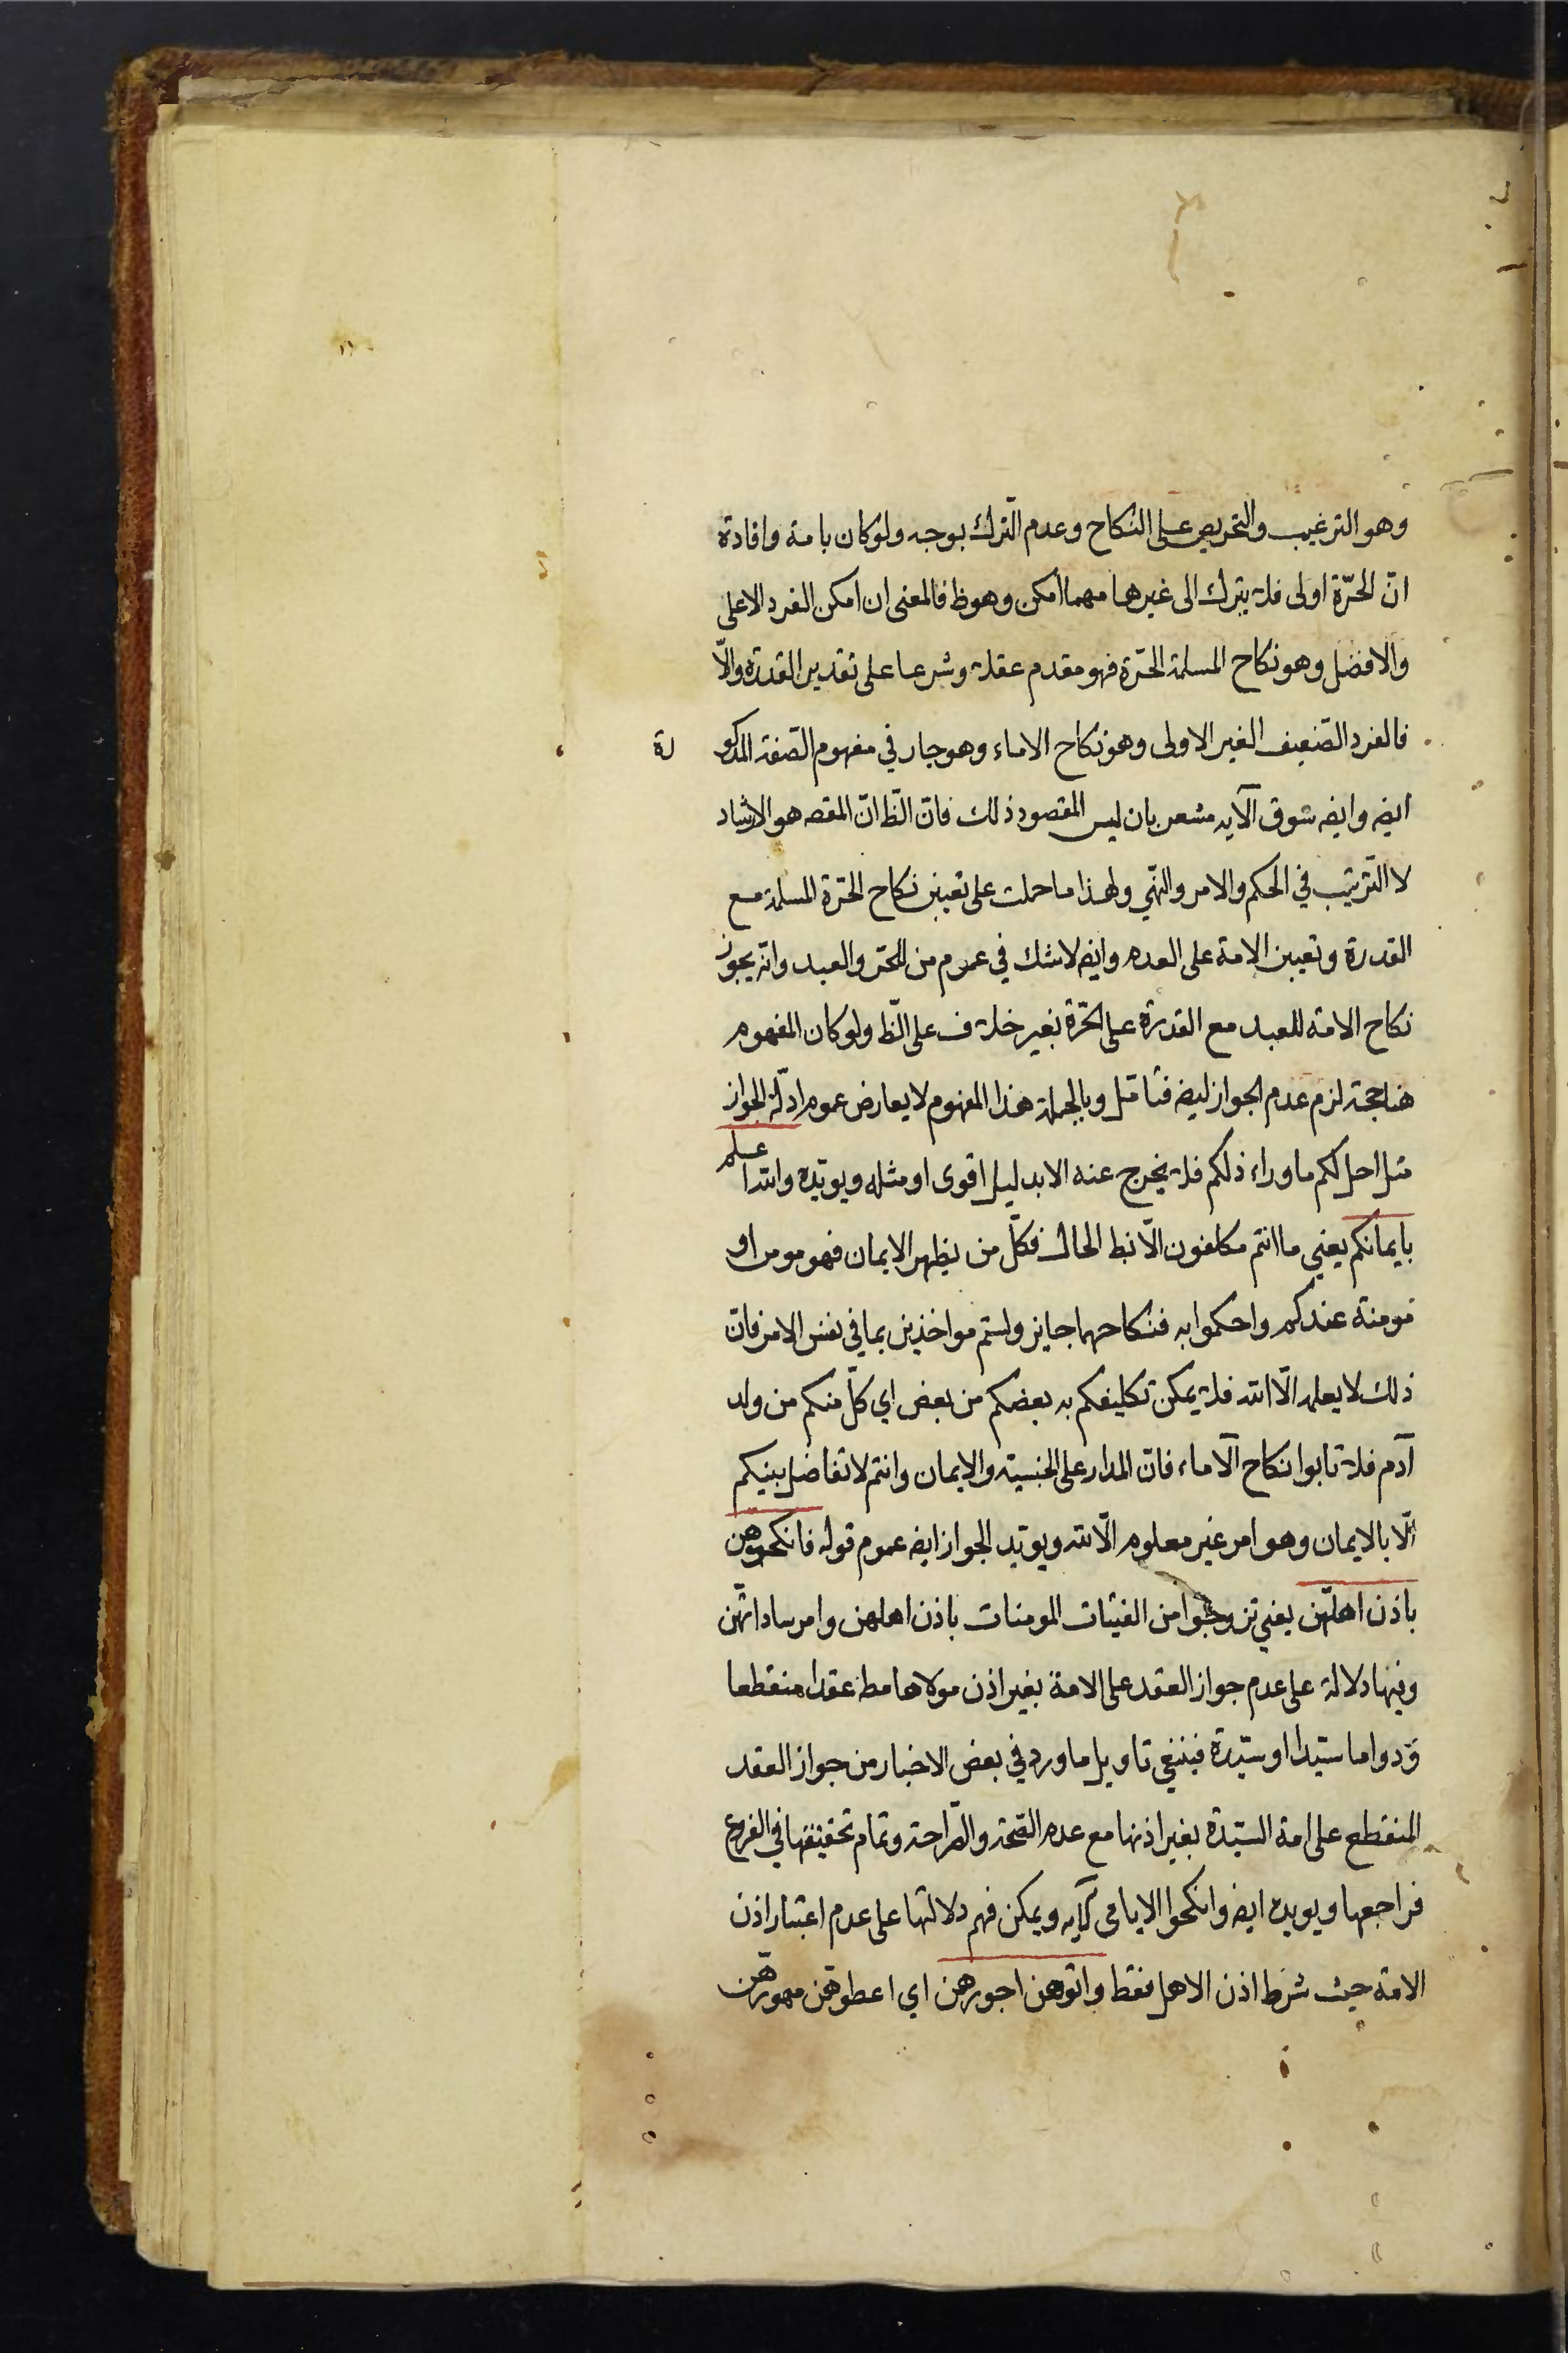 وهو الترغيب والتحريص على النكاح وعدم الترك بوجه ولو كان بامة وافادة
انّ الحرّة اولى فلا يترك الى غيرها مهما امكن وهو ظ فالمعنى ان امكن الفرد الاعلى
والافضل وهو نكاح المسلمة الحرّة فهو مقدم عقلا وشرعا على تقدير القدرة والّا
فالفرد الضعيف الغير الاولى وهو نكاح الاماء وهو جار في مفهوم الصّفة المذكورة
ايضه وايضه سوق الآيه مشعر بان ليس المقصود ذلك فانّ الظّ انّ المقصه هو الارشاد
لا الترتيب في الحكم والامر والنهي ولهذا ما حملت على تعيين نكاح الحرّة المسلمة مع
القدرة وتعيين الامة على العدم وايضه لا شك في عموم من للحرّ والعبد وانّه يجوز
نكاح الامة للعبد مع القدرة على الحرّة بغير خلاف على الظّ ولو كان المفهوم
هنا حجة لزم عدم الجواز ايضه فتامّل وبالجملة هذا المفهوم لا يعارض عموم ادلّة الجواز
مثل احل لكم ما وراء ذلكم فلا يخرج عنه الا بدليل اقوى او مثله ويويّده والله اعلم
بايمانكم يعني ما انتم مكلفون الّا بظ الحال فكلّ من يظهر الايمان فهو مومن او
مومنة عندكم واحكموا به فنكاحهما جايز ولستم مواخذين بما في نفس الامر فانّ
ذلك لا يعلمه الّا الله فلا يمكن تكليفكم به بعضكم من بعض اي كلّ منكم من ولد
آدم فلا تابوا نكاح الآماء فانّ المدار على الجنسيّة والايمان وانتم لا تفاضل بينكم
الّا بالايمان وهو امر غير معلوم الّا لله ويويّد الجواز ايضه عموم قوله فانكحوهن
باذن اهلهّن يعني تزوجوا من الفتيات المومنات باذن اهلهن وامر ساداتهّن
وفيها دلالة على عدم جواز العقد على الامة بغير اذن مولاها مط عقدا منقطعا
ودواما سيّدا او سيّدة فينبغي تاويل ما ورد في بعض الاخبار من جواز العقد
المنقطع على امة السيّدة بغير اذنها مع عدم الصّحة والصّراحة وتمام تحقيقها في الفروع
فراجعها ويويده ايضه وانكحوا الايامى الآيه ويمكن فهم دلالتها على عدم اعتبار اذن
الامة حيث شرط اذن الاهل فقط واتوهن اجورهن اي اعطوهّن مهورهّن